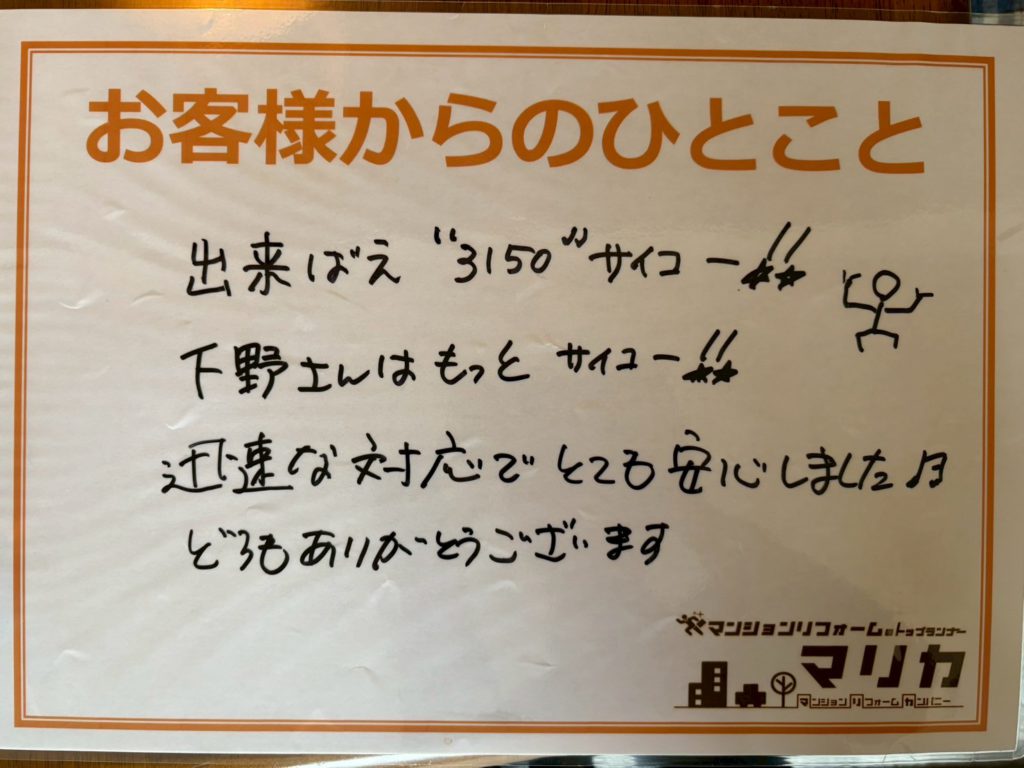 お客様からのひとこと
出来ばえ “3150” サイコー!!
下野さんはもっと サイコー!!
迅速な対応でとても安心しました♫
どうもありがとうございます
マンションリフォームのトップランナー
マリカ
マンションリフォームカンパニー